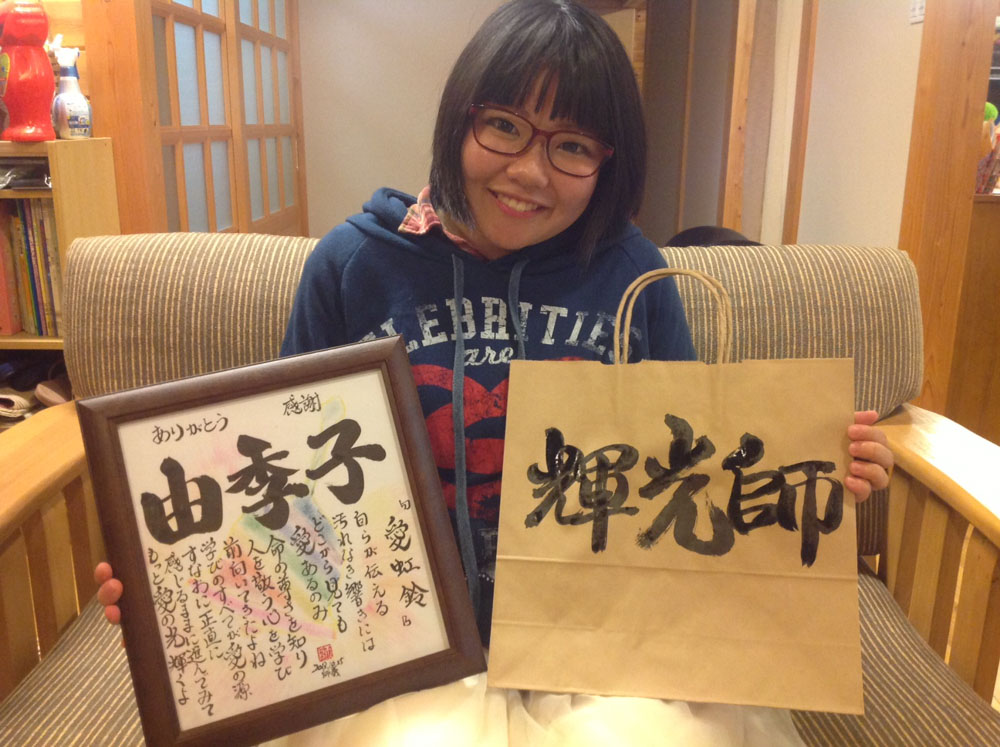 ありがとう
感謝
由季子
愛虹鈴
自らが伝える
汚れなき響きには
どこから見ても
愛あるのみ
命の尊さを知り
人を敬う心を学び
前向いてきたよね
学びのすべてが愛の源
すなおに正直に
感じるままに進んでみて
もっと愛の光輝くよ
輝光師
CELEBRITIES
are